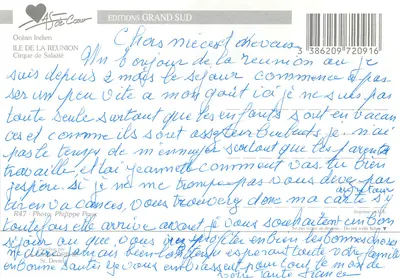 As de Cœur
EDITIONS GRAND SUD
Océan Indien
ILE DE LA REUNION
Cirque de Salazie
3 386209 720916
Chers nièce et neveux
Un bonjour de la reunion ou je
suis depuis 2 mois le séjour commence a pas
ser un peu vite a mon goût ici je ne suis pas
toute seule surtout que les enfants sont en vacan
ces et comme ils sont asser turbulents je n'ai
pas le temps de m'ennuyer surtout que les parents
travaille, et toi jeannette comment vas tu bien
j'espère si je ne me trompe pas vous devez par
tir en vacances, vous trouverez donc ma carte s'y
R47 - Photo: Philippe
toutefois elle arrive avant je vous souhaite un bon
séjour
profite bien les bonnes choses
ne dure jamais bien longtemps j'esperant toute votre famille
bonne santée je vous embrassent pour tout le monde
votre tante